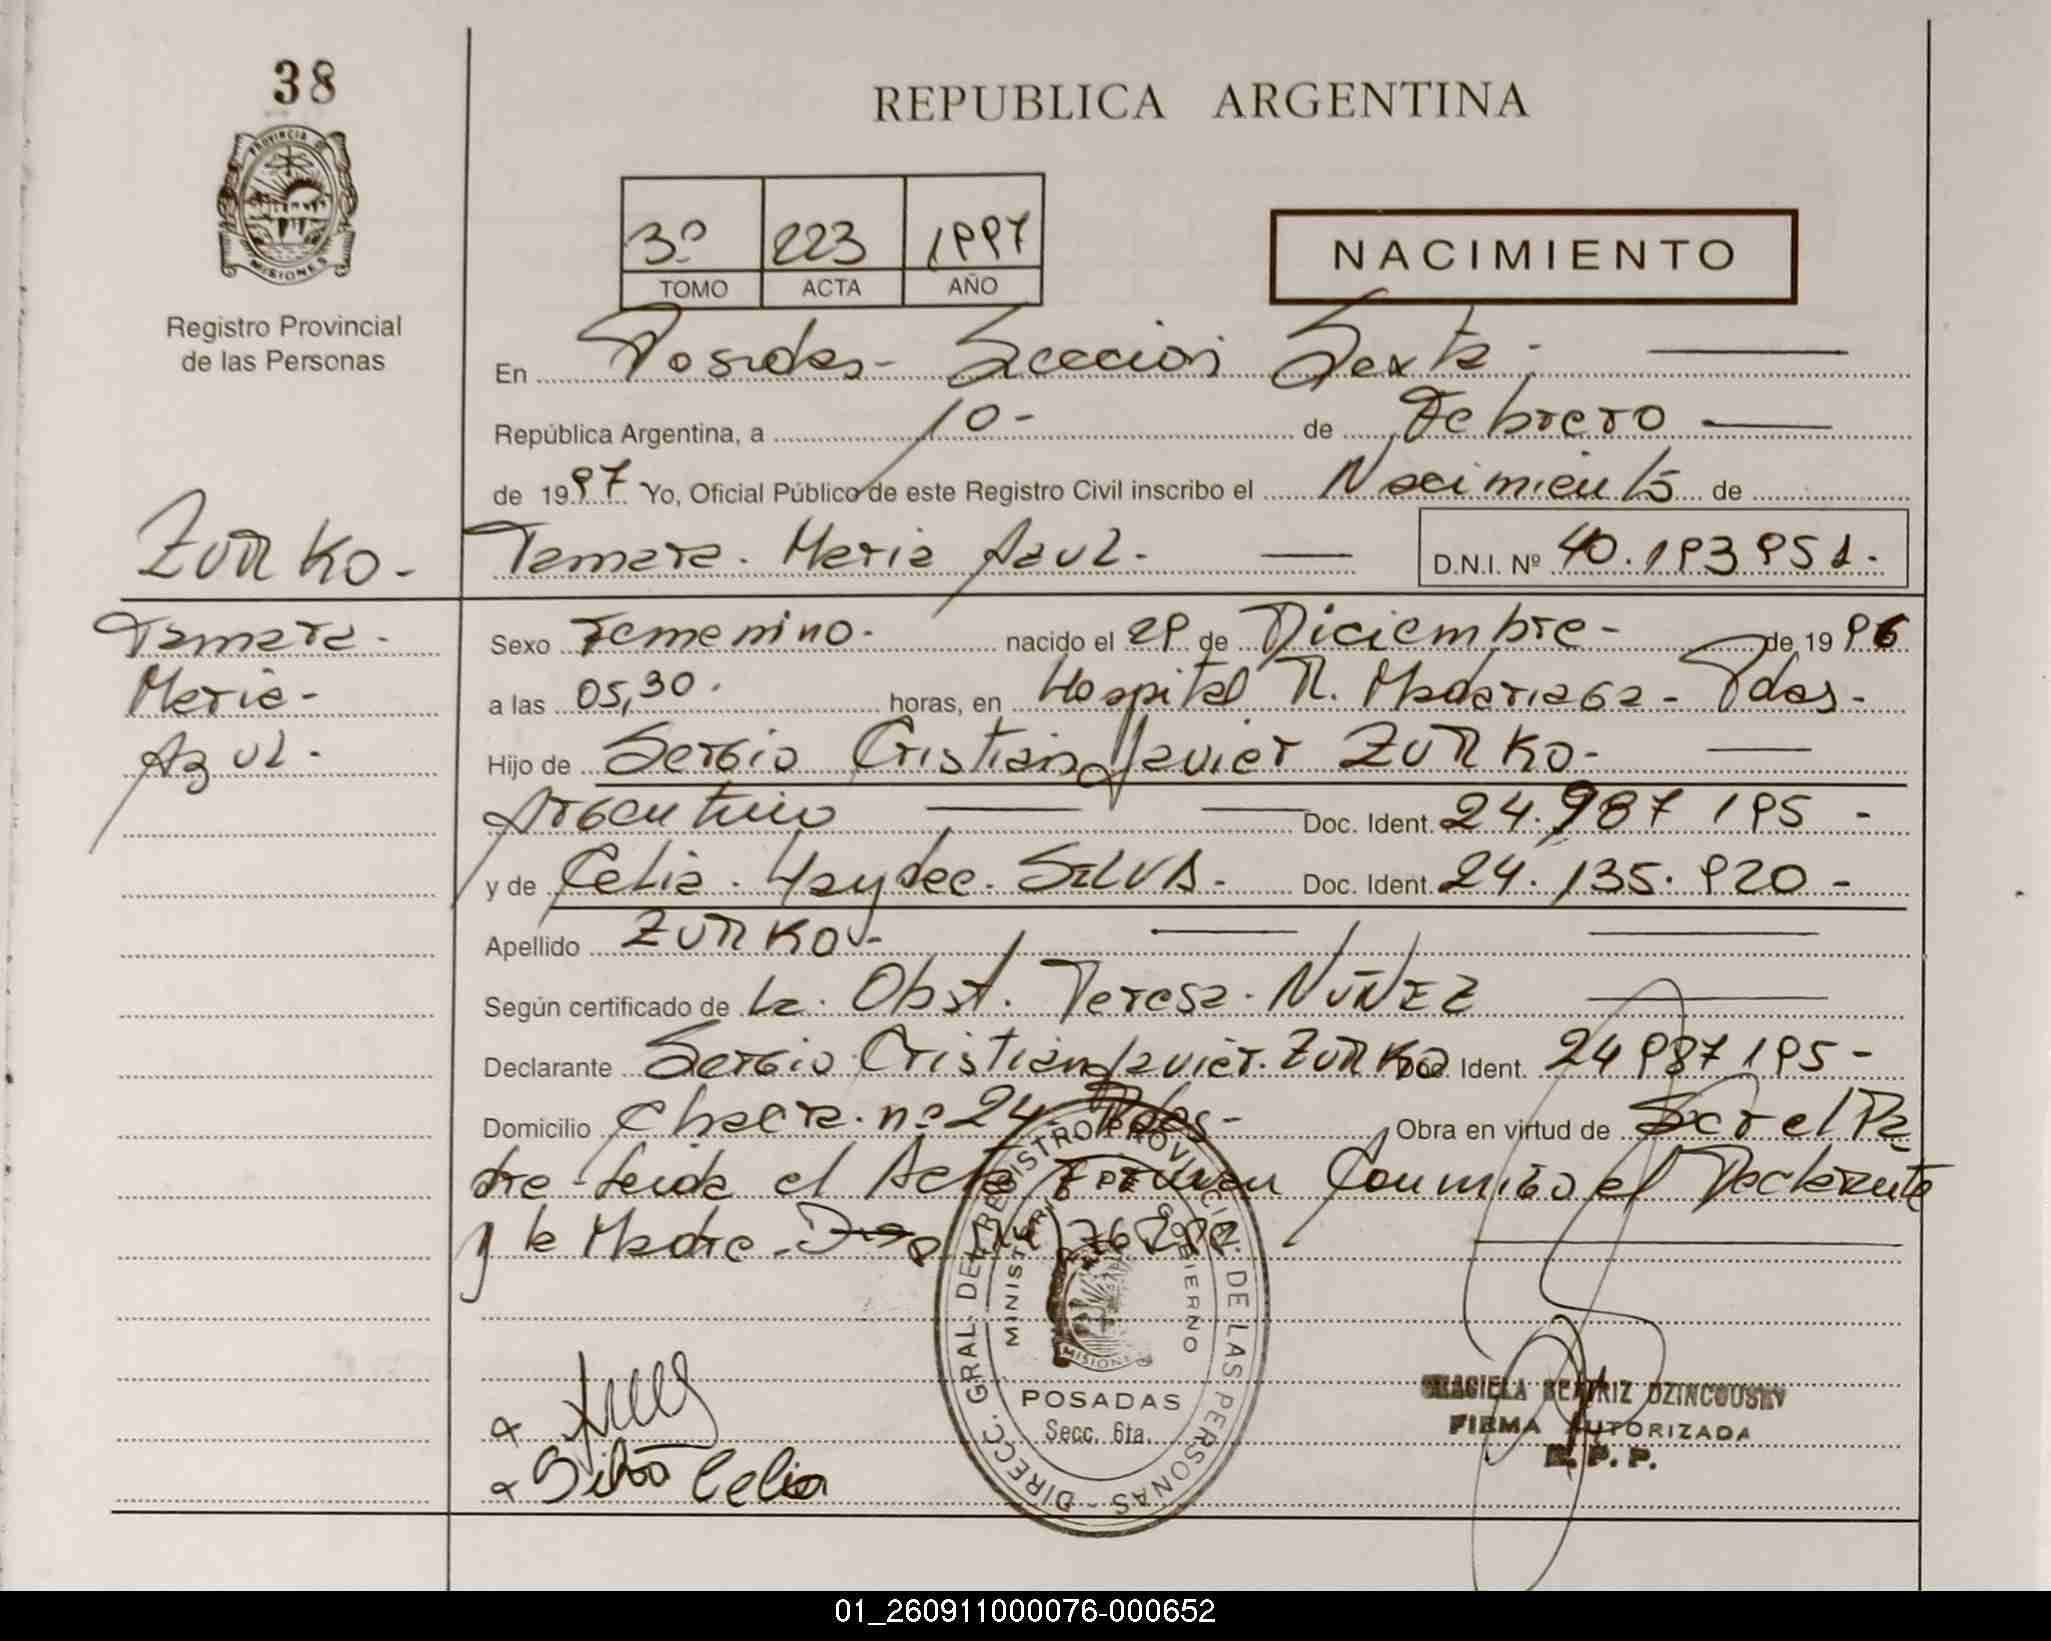 38
REPUBLICA ARGENTINA
PROVINCIA DE
MISIONES
Registro Provincial
de las Personas
3º 223 1997
TOMO ACTA AÑO
NACIMIENTO
En Posadas - Sección Sexta -
República Argentina, a 10- de Febrero
de 1997 Yo, Oficial Público de este Registro Civil inscribo el Nacimiento de
ZURKO - Tamara. Maria Azul - D.N.I. Nº 40.193951.-
Tamara - Sexo Femenino - nacido el 29 de Diciembre - de 1996
Maria - a las 05,30. horas, en Hospital R. Madariaga - Pdas -
Azul - Hijo de Sergio Cristian Javier ZURKO -
Argentino Doc. Ident. 24.987 195 -
y de Celia. Haydee. SILVA - Doc. Ident. 24.135.920 -
Apellido ZURKO -
Según certificado de la. Obst. Teresa. NUÑEZ
Declarante Sergio Cristian Javier. ZURKO Doc. Ident. 24987195 -
Domicilio Chacra. nº 24. Pdas - Obra en virtud de Ser el Pa
dre - Leida el Acta Firman Conmigo el Declarante
y la Madre -
DIRECC. GRAL. DEL REGISTRO PROVINCIAL DE LAS PERSONAS -
MINISTERIO GOBIERNO
MISIONES
POSADAS
Secc. 6ta.
Silva Celia
GRACIELA BEATRIZ DZINCOUSKY
FIRMA AUTORIZADA
R. P. P.
01_260911000076-000652